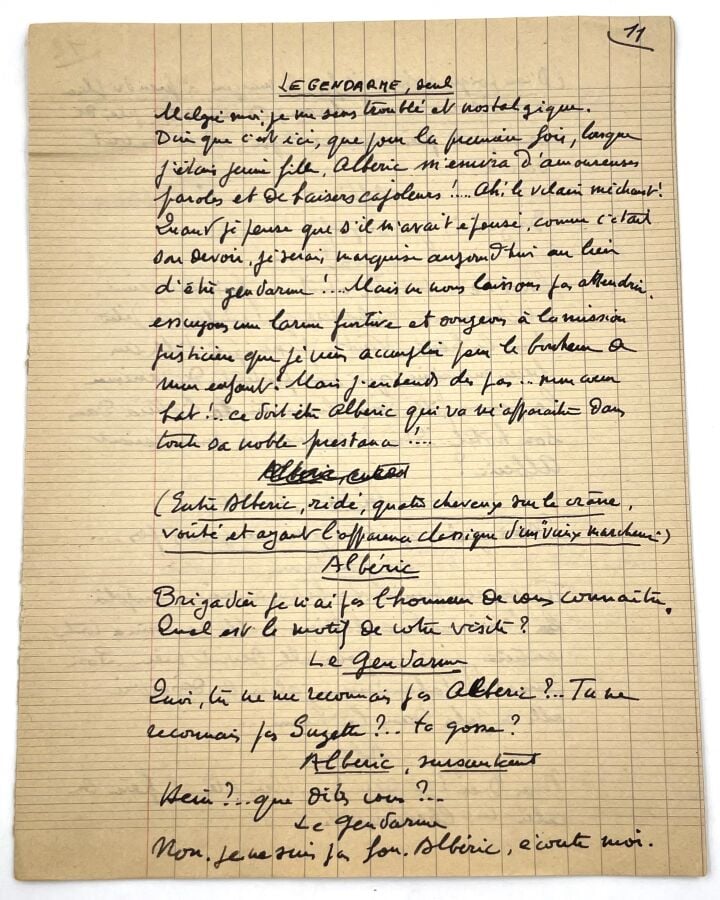 11
LE GENDARME, seul
Malgré moi, je me sens troublé et nostalgique.
Dire que c'est ici, que pour la première fois, lorsque
j'étais jeune fille, Alberic m'enivra d'amoureuses
paroles et de baisers cajoleurs !.... Ah ! le vilain méchant !
Quand je pense que s'il m'avait épousé, comme c'était
son devoir, je serais marquise aujourd'hui au lieu
d'être gendarme !... Mais ne nous laissons pas attendrir,
essuyons une larme furtive et songeons à la mission
justicière que je viens accomplir pour le bonheur de
mon enfant ! Mais j'entends des pas... mon cœur
bat !.. ce doit être Alberic qui va m'apparaître dans
toute sa noble prestance !....
(Entre Alberic, ridé, quatre cheveux sur le crâne,
voûté et ayant l'apparence classique d'un "vieux marcheur")
Albéric
Brigadier je n'ai pas l'honneur de vous connaître.
Quel est le motif de votre visite ?
Le Gendarme
Quoi, tu ne me reconnais pas Alberic ?.. Tu ne
reconnais pas Suzette ?.. ta gosse ?
Alberic, sursautant
Hein ?.. que dites vous ?..
Le Gendarme
Non. je ne suis pas fou. Albéric, écoute moi.